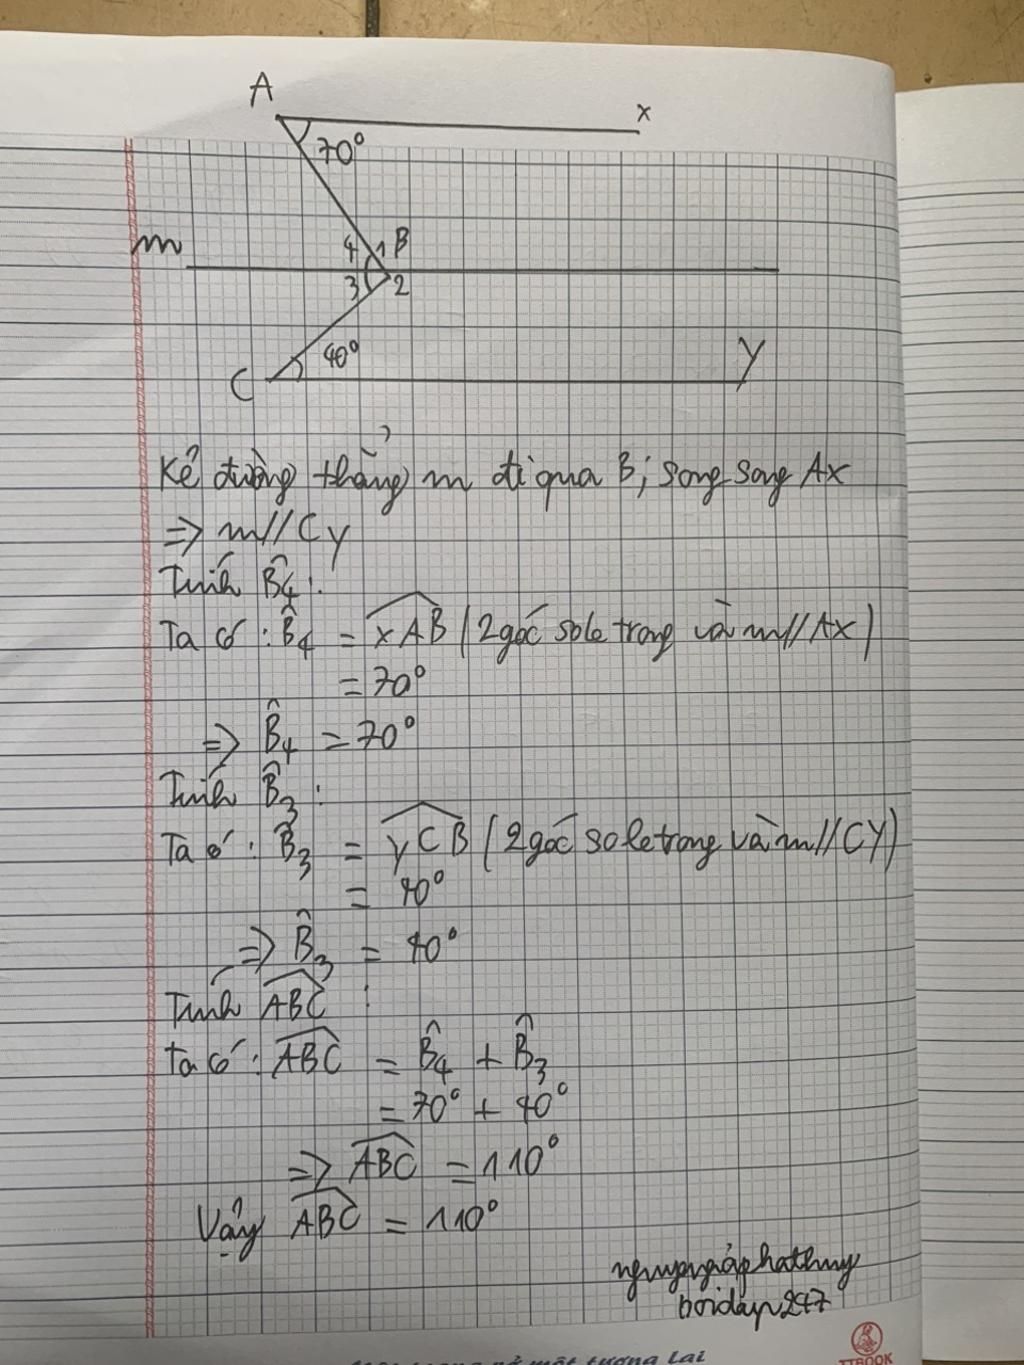 A
x
70°
m
4 1 B
3 2
40°
C
y
Kẻ đường thẳng m đi qua B; song song Ax
=> m//Cy
Tính B̂₄:
Ta có: B̂₄ = xAB (2 góc so le trong và m//Ax)
= 70°
=> B̂₄ = 70°
Tính B̂₃:
Ta có: B̂₃ = yCB (2 góc so le trong và m//Cy)
= 40°
=> B̂₃ = 40°
Tính ABC :
Ta có: ABC = B̂₄ + B̂₃
= 70° + 40°
=> ABC = 110°
Vậy ABC = 110°
boidap247
tương lai
TTBOOK